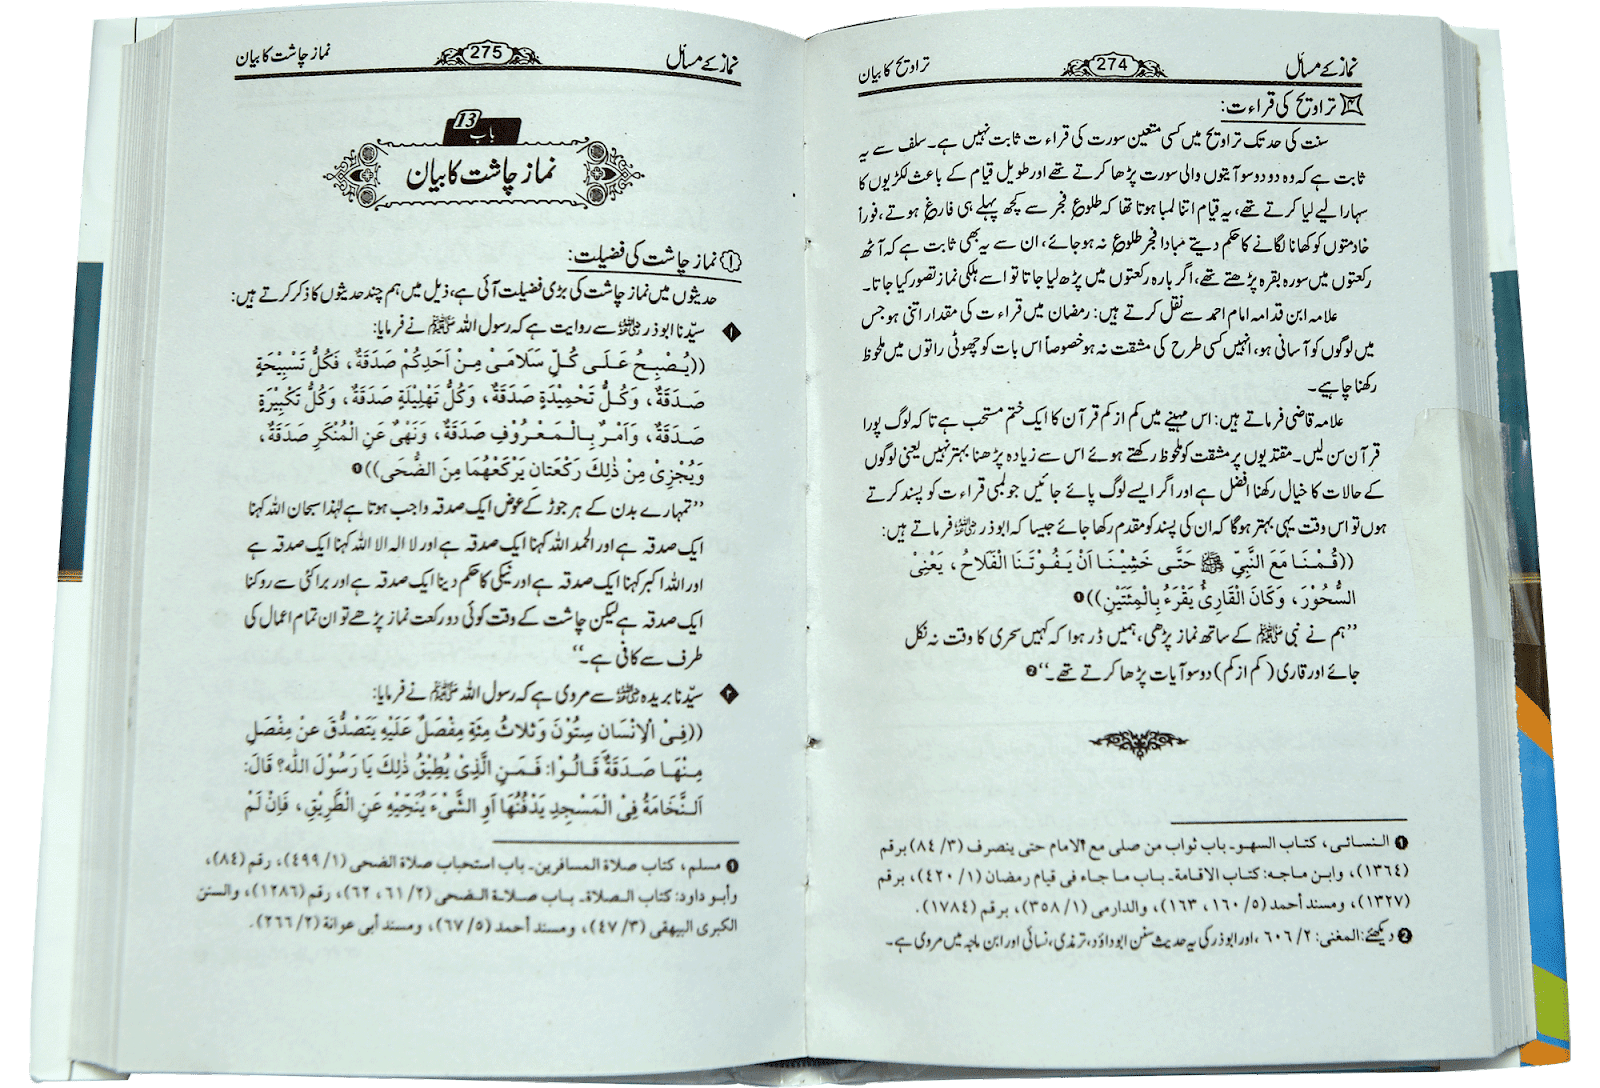 نماز کے مسائل 274 تراویح کا بیان
۳ تراویح کی قراءت:
سنت کی حد تک تراویح میں کسی متعین سورت کی قراءت ثابت نہیں ہے۔ سلف سے یہ
ثابت ہے کہ وہ دو دو سو آیتوں والی سورت پڑھا کرتے تھے اور طویل قیام کے باعث لکڑیوں کا
سہارا لیے لیا کرتے تھے، یہ قیام اتنا لمبا ہوتا تھا کہ طلوع فجر سے کچھ پہلے ہی فارغ ہوتے، فوراً
خادمتوں کو کھانا لگانے کا حکم دیتے مبادا فجر طلوع نہ ہو جائے، ان سے یہ بھی ثابت ہے کہ آٹھ
رکعتوں میں سورہ بقرہ پڑھتے تھے، اگر بارہ رکعتوں میں پڑھ لیا جاتا تو اسے ہلکی نماز تصور کیا جاتا۔
علامہ ابن قدامہ امام احمد سے نقل کرتے ہیں: رمضان میں قراءت کی مقدار اتنی ہو جس
میں لوگوں کو آسانی ہو، انہیں کسی طرح کی مشقت نہ ہو خصوصاً اس بات کو چھوٹی راتوں میں ملحوظ
رکھنا چاہیے۔
علامہ قاضی فرماتے ہیں: اس مہینے میں کم از کم قرآن کا ایک ختم مستحب ہے تاکہ لوگ پورا
قرآن سن لیں۔ مقتدیوں پر مشقت کو ملحوظ رکھتے ہوئے اس سے زیادہ پڑھنا بہتر نہیں یعنی لوگوں
کے حالات کا خیال رکھنا افضل ہے اور اگر ایسے لوگ پائے جائیں جو لمبی قراءت کو پسند کرتے
ہوں تو اس وقت یہی بہتر ہوگا کہ ان کی پسند کو مقدم رکھا جائے جیسا کہ ابوذر رضی اللہ عنہ فرماتے ہیں:
((قُمْنَا مَعَ النَّبِيِّ ﷺ حَتَّى خَشِيْنَا اَنْ يَفُوْتَنَا الْفَلَاحُ، يَعْنِي
السُّحُوْرَ، وَكَانَ الْقَارِئُ يَقْرَءُ بِالْمِئَتَيْنِ))❶
’’ہم نے نبی ﷺ کے ساتھ نماز پڑھی، ہمیں ڈر ہوا کہ کہیں سحری کا وقت نہ نکل
جائے اور قاری (کم از کم) دو سو آیات پڑھا کرتے تھے۔‘‘❷
❶ النسائى، كتاب السهو۔ باب ثواب من صلى مع الامام حتى ينصرف (۳/ ۸٤) برقم
(۱۳٦٤)، وابن ماجه: كتاب الاقامة۔ باب ما جاء فى قيام رمضان (۱/ ٤۲۰)، برقم
(۱۳۲۷)، ومسند أحمد (۵/ ۱٦۰، ۱٦۳)، والدارمى (۱/ ۳۵۸)، برقم (۱۷۸٤).
❷ دیکھئے: المغنی: ۲/ ٦۰٦، اور ابوذر کی یہ حدیث سنن ابوداؤد، ترمذی، نسائی اور ابن ماجہ میں مروی ہے۔
نماز کے مسائل 275 نماز چاشت کا بیان
باب 13
نماز چاشت کا بیان
۱ نماز چاشت کی فضیلت:
حدیثوں میں نماز چاشت کی بڑی فضیلت آئی ہے، ذیل میں ہم چند حدیثوں کا ذکر کرتے ہیں:
۱ سیّدنا ابوذر رضی اللہ عنہ سے روایت ہے کہ رسول اللہ ﷺ نے فرمایا:
((يُصْبِحُ عَلَى كُلِّ سَلَامَى مِنْ اَحَدِكُمْ صَدَقَةٌ، فَكُلُّ تَسْبِيْحَةٍ
صَدَقَةٌ، وَكُلُّ تَحْمِيْدَةٍ صَدَقَةٌ، وَكُلُّ تَهْلِيْلَةٍ صَدَقَةٌ، وَكُلُّ تَكْبِيْرَةٍ
صَدَقَةٌ، وَاَمْرٌ بِالْمَعْرُوْفِ صَدَقَةٌ، وَنَهْىٌ عَنِ الْمُنْكَرِ صَدَقَةٌ،
وَيُجْزِئُ مِنْ ذٰلِكَ رَكْعَتَانِ يَرْكَعْهُمَا مِنَ الضُّحَى))❶
’’تمہارے بدن کے ہر جوڑ کے عوض ایک صدقہ واجب ہوتا ہے لہٰذا سبحان اللہ کہنا
ایک صدقہ ہے اور الحمد اللہ کہنا ایک صدقہ ہے اور لا الہ الا اللہ کہنا ایک صدقہ ہے
اور اللہ اکبر کہنا ایک صدقہ ہے اور نیکی کا حکم دینا ایک صدقہ ہے اور برائی سے روکنا
ایک صدقہ ہے لیکن چاشت کے وقت کوئی دو رکعت نماز پڑھے تو ان تمام اعمال کی
طرف سے کافی ہے۔‘‘
۲ سیّدنا بریدہ رضی اللہ عنہ سے مروی ہے کہ رسول اللہ ﷺ نے فرمایا:
((فِىْ الْاِنْسَانِ سِتُّوْنَ وَثَلاثُ مِئَةِ مِفْصَلٌ عَلَيْهِ يَتَصَدُّقَ عَنْ مِفْصَلٍ
مِنْهَا صَدَقَةٌ قَالُوْا: فَمَنِ الَّذِىْ يُطِيْقُ ذٰلِكَ يَا رَسُوْلَ اللّٰهِ؟ قَالَ:
اَلنَّخَامَةُ فِىْ الْمَسْجِدِ يَدْفُنُهَا اَوِ الشَّىْءَ يُنَحِّيْهِ عَنِ الْطَّرِيْقِ، فَاِنْ لَمْ
❶ مسلم، كتاب صلاة المسافرين۔ باب استحباب صلاة الضحى (۱/ ٤۹۹)، رقم (۸٤)،
وأبو داود: كتاب الصلاة۔ باب صلاة الضحى (۲/ ٦۱، ٦۲)، رقم (۱۲۸٦)، والسنن
الكبرى البيهقى (۳/ ٤۷)، ومسند أحمد (۵/ ٦۷)، ومسند أبى عوانة (۲/ ۲٦٦).